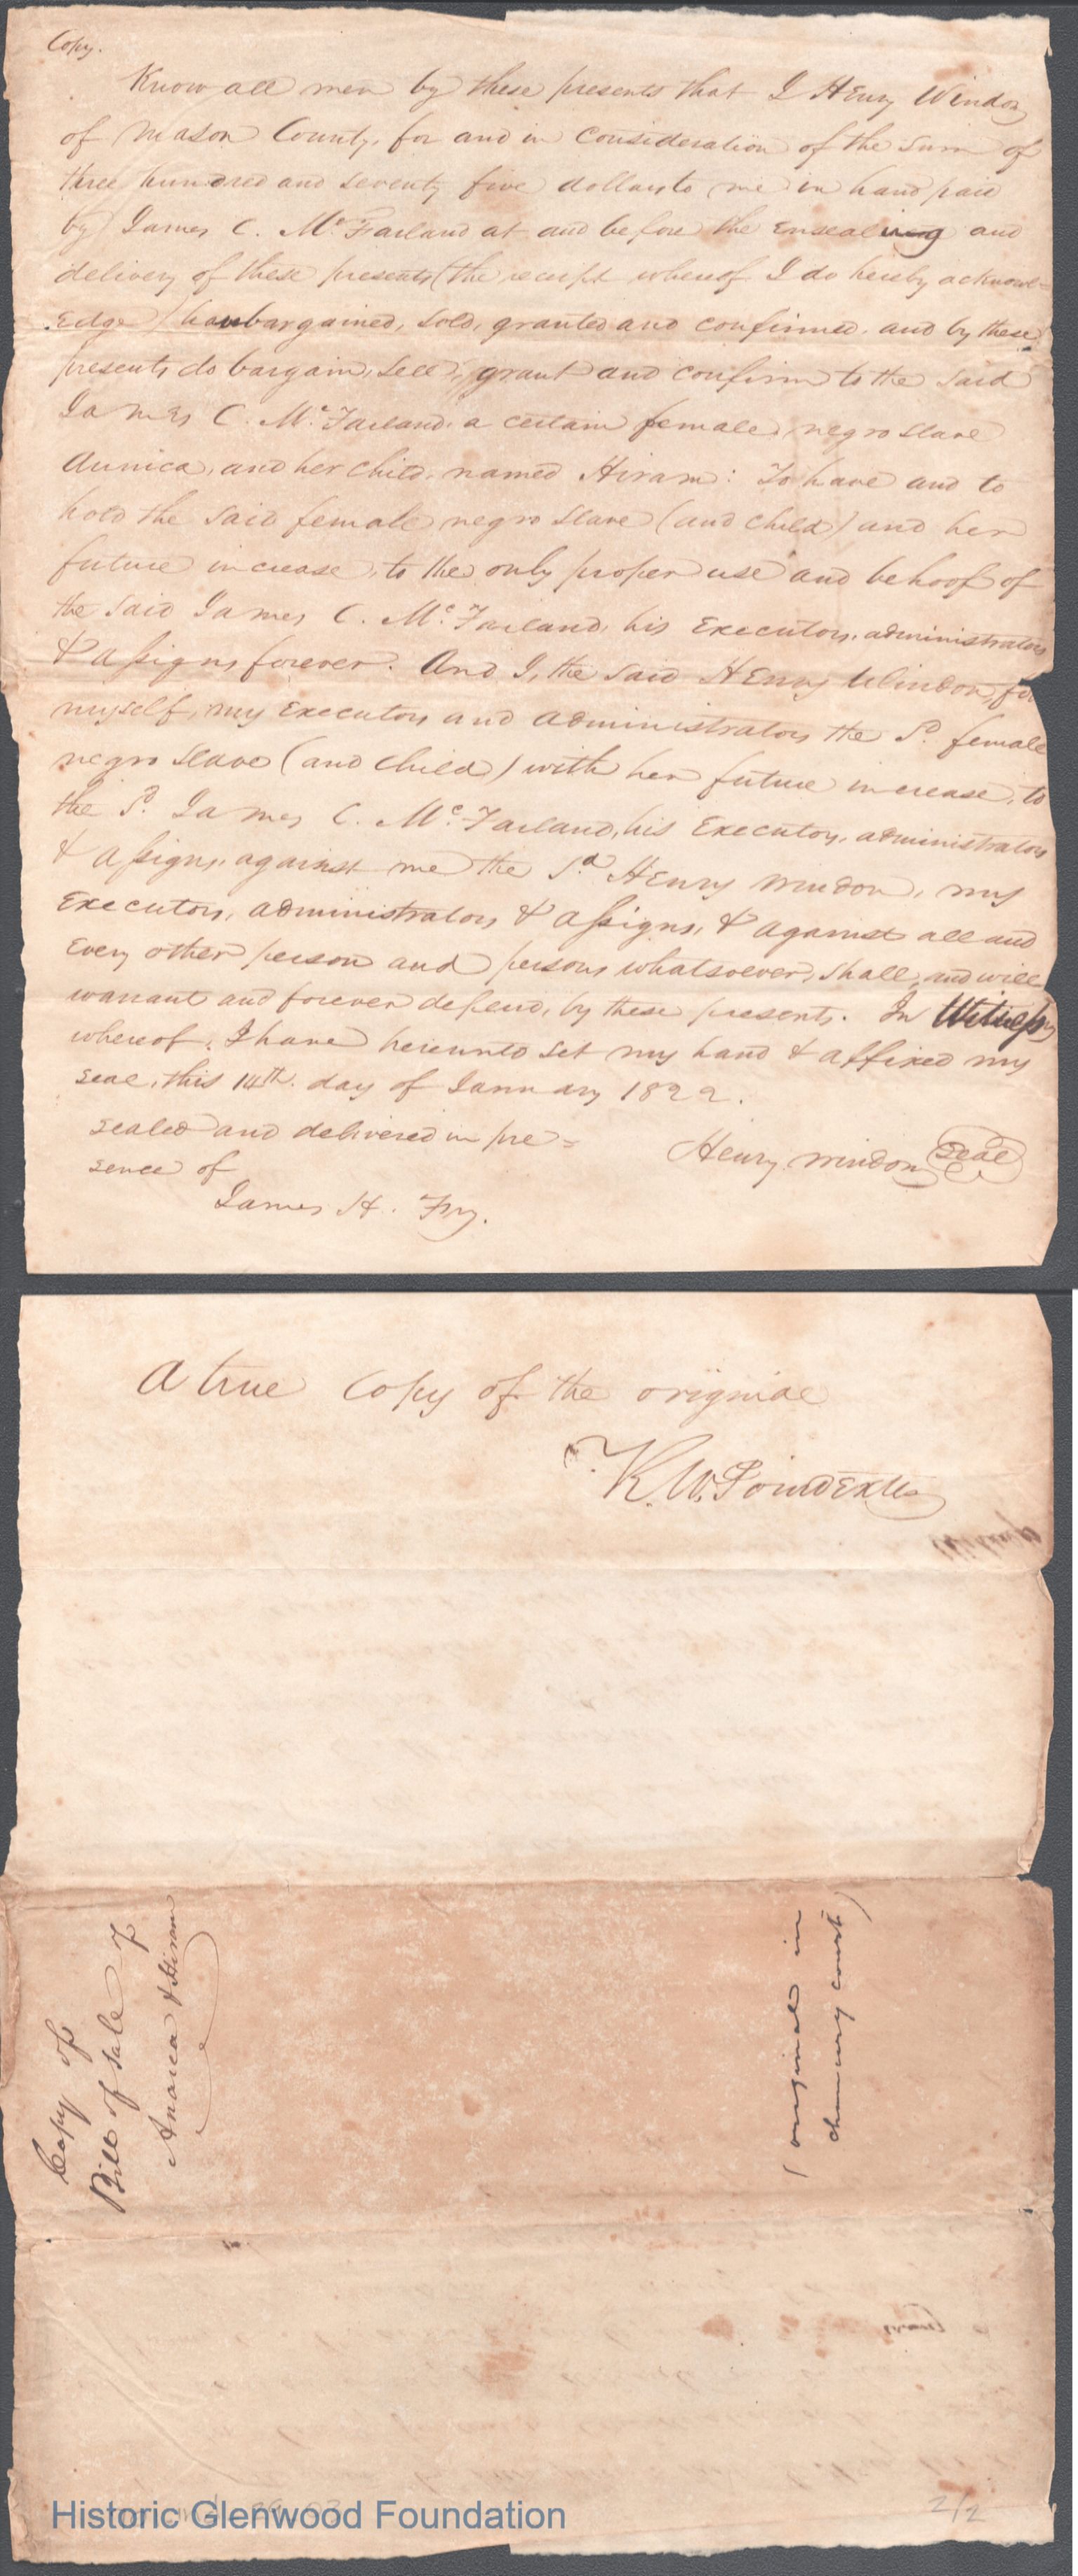 Copy.
Know all men by these presents that I Henry Windon
of Mason County, for and in consideration of the sum of
three hundred and seventy five dollars to me in hand paid
by James C. McFarland at and before the ensealing and
delivery of these presents (the receipt whereof I do hereby acknowl=
edge) have bargained, sold, granted and confirmed, and by these
presents do bargain, sell, grant and confirm to the said
James C. McFarland, a certain female negro slave
Annica, and her child, named Hiram: To have and to
hold the said female negro slave (and child) and her
future increase, to the only proper use and behoof of
the said James C. McFarland, his Executors, administrators
& assigns forever. And I, the said Henry Windon, for
myself, my Executors and administrators the sd. female
negro slave (and child) with her future increase, to
the sd. James C. McFarland, his Executors, administrators
& assigns, against me the sd. Henry Windon, my
Executors, administrators & assigns, & against all and
every other person and persons whatsoever, shall, and will
warrant and forever defend, by these presents. In Witness
whereof, I have hereunto set my hand & affixed my
seal, this 14th. day of January 1822.
sealed and delivered in pre=
sence of
Henry Windon seal
James H. Fry.
A true Copy of the original
K. W. Poindexter
Copy of
Bill of Sale of
Anaca & Hiram
(original in
chancery court)
Historic Glenwood Foundation
2/2